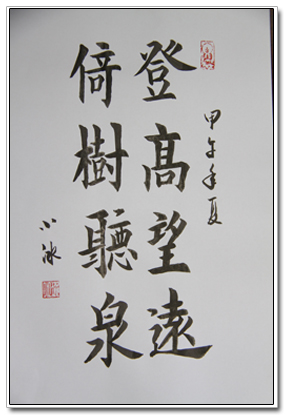 登高望遠
倚樹聽泉
甲午年夏
小冰